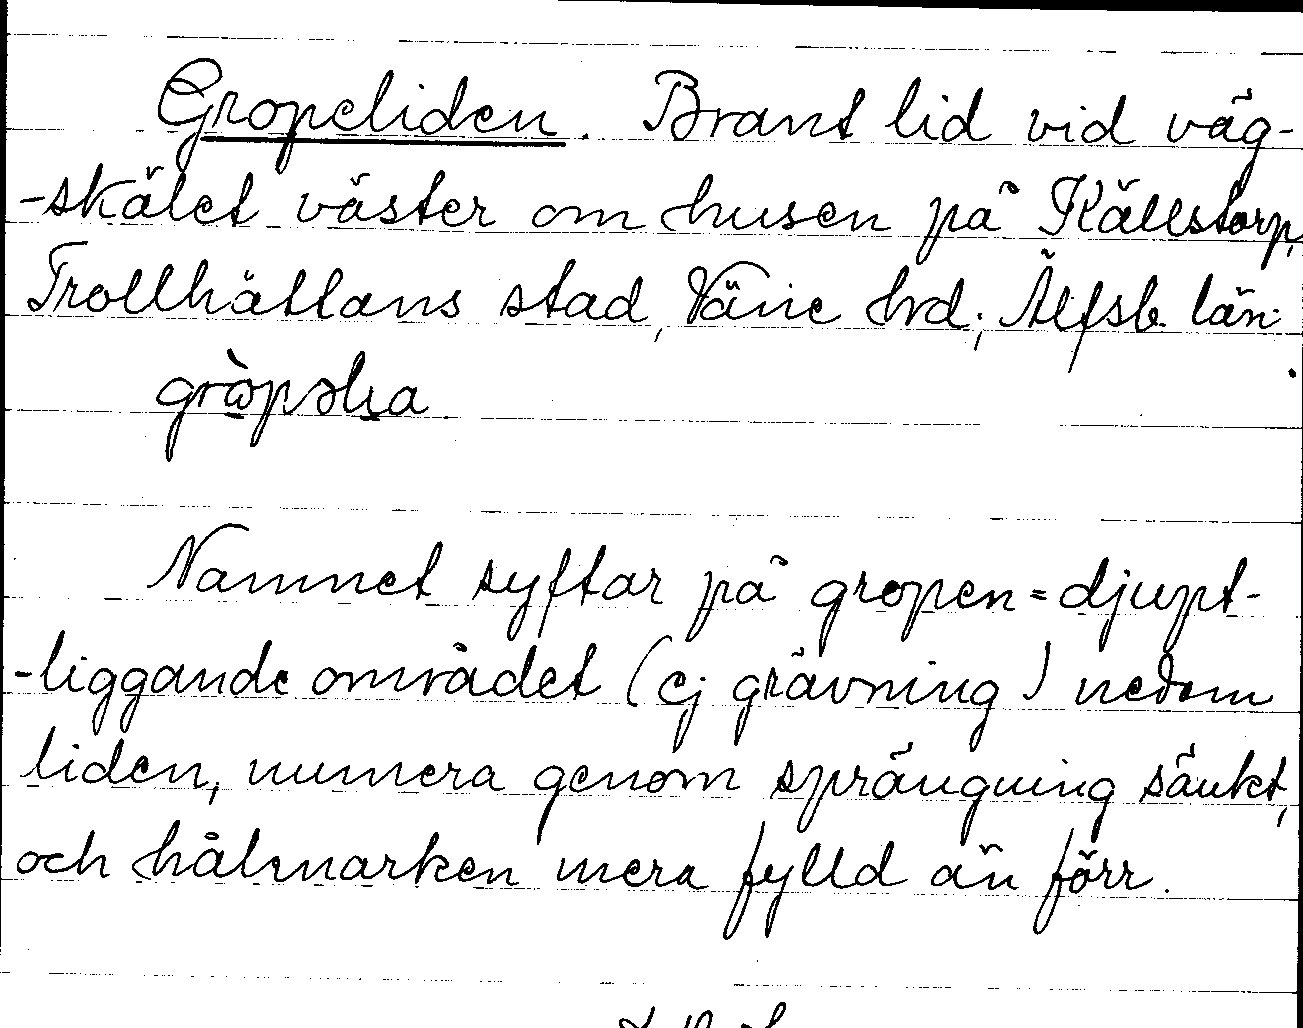 Gropeliden. Brant lid vid väg-
-skälet väster om husen på Källstorp,
Trollhättans stad, Väne hrd; Älfsb. län.
Namnet syftar på gropen = djupt-
-liggande området (ej grävning) nedom
liden, numera genom sprängning sänkt,
och hålmarken mera fylld än förr.